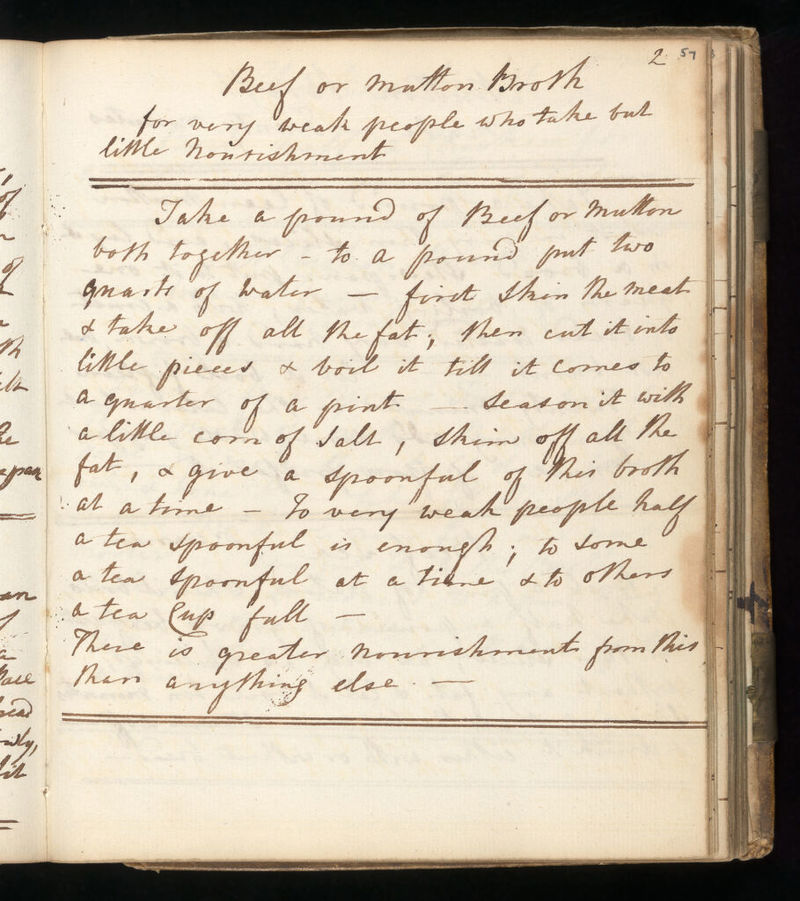 2 57
Beef or Mutton Broth
for very weak people who take but
little Nourishment
Take a pound of Beef or Mutton
both together - to a pound put two
quarts of Water — first Skin the meat
& take off all the fat; then cut it into
little pieces & boil it till it comes to
a quarter of a pint — Season it with
a little corn of Salt, Skim off all the
fat, & give a spoonful of this broth
at a time — To very weak people half
a tea spoonful is enough; to some
a tea spoonful at a time & to others
a tea Cup full —
There is greater nourishment from this
than anything else —